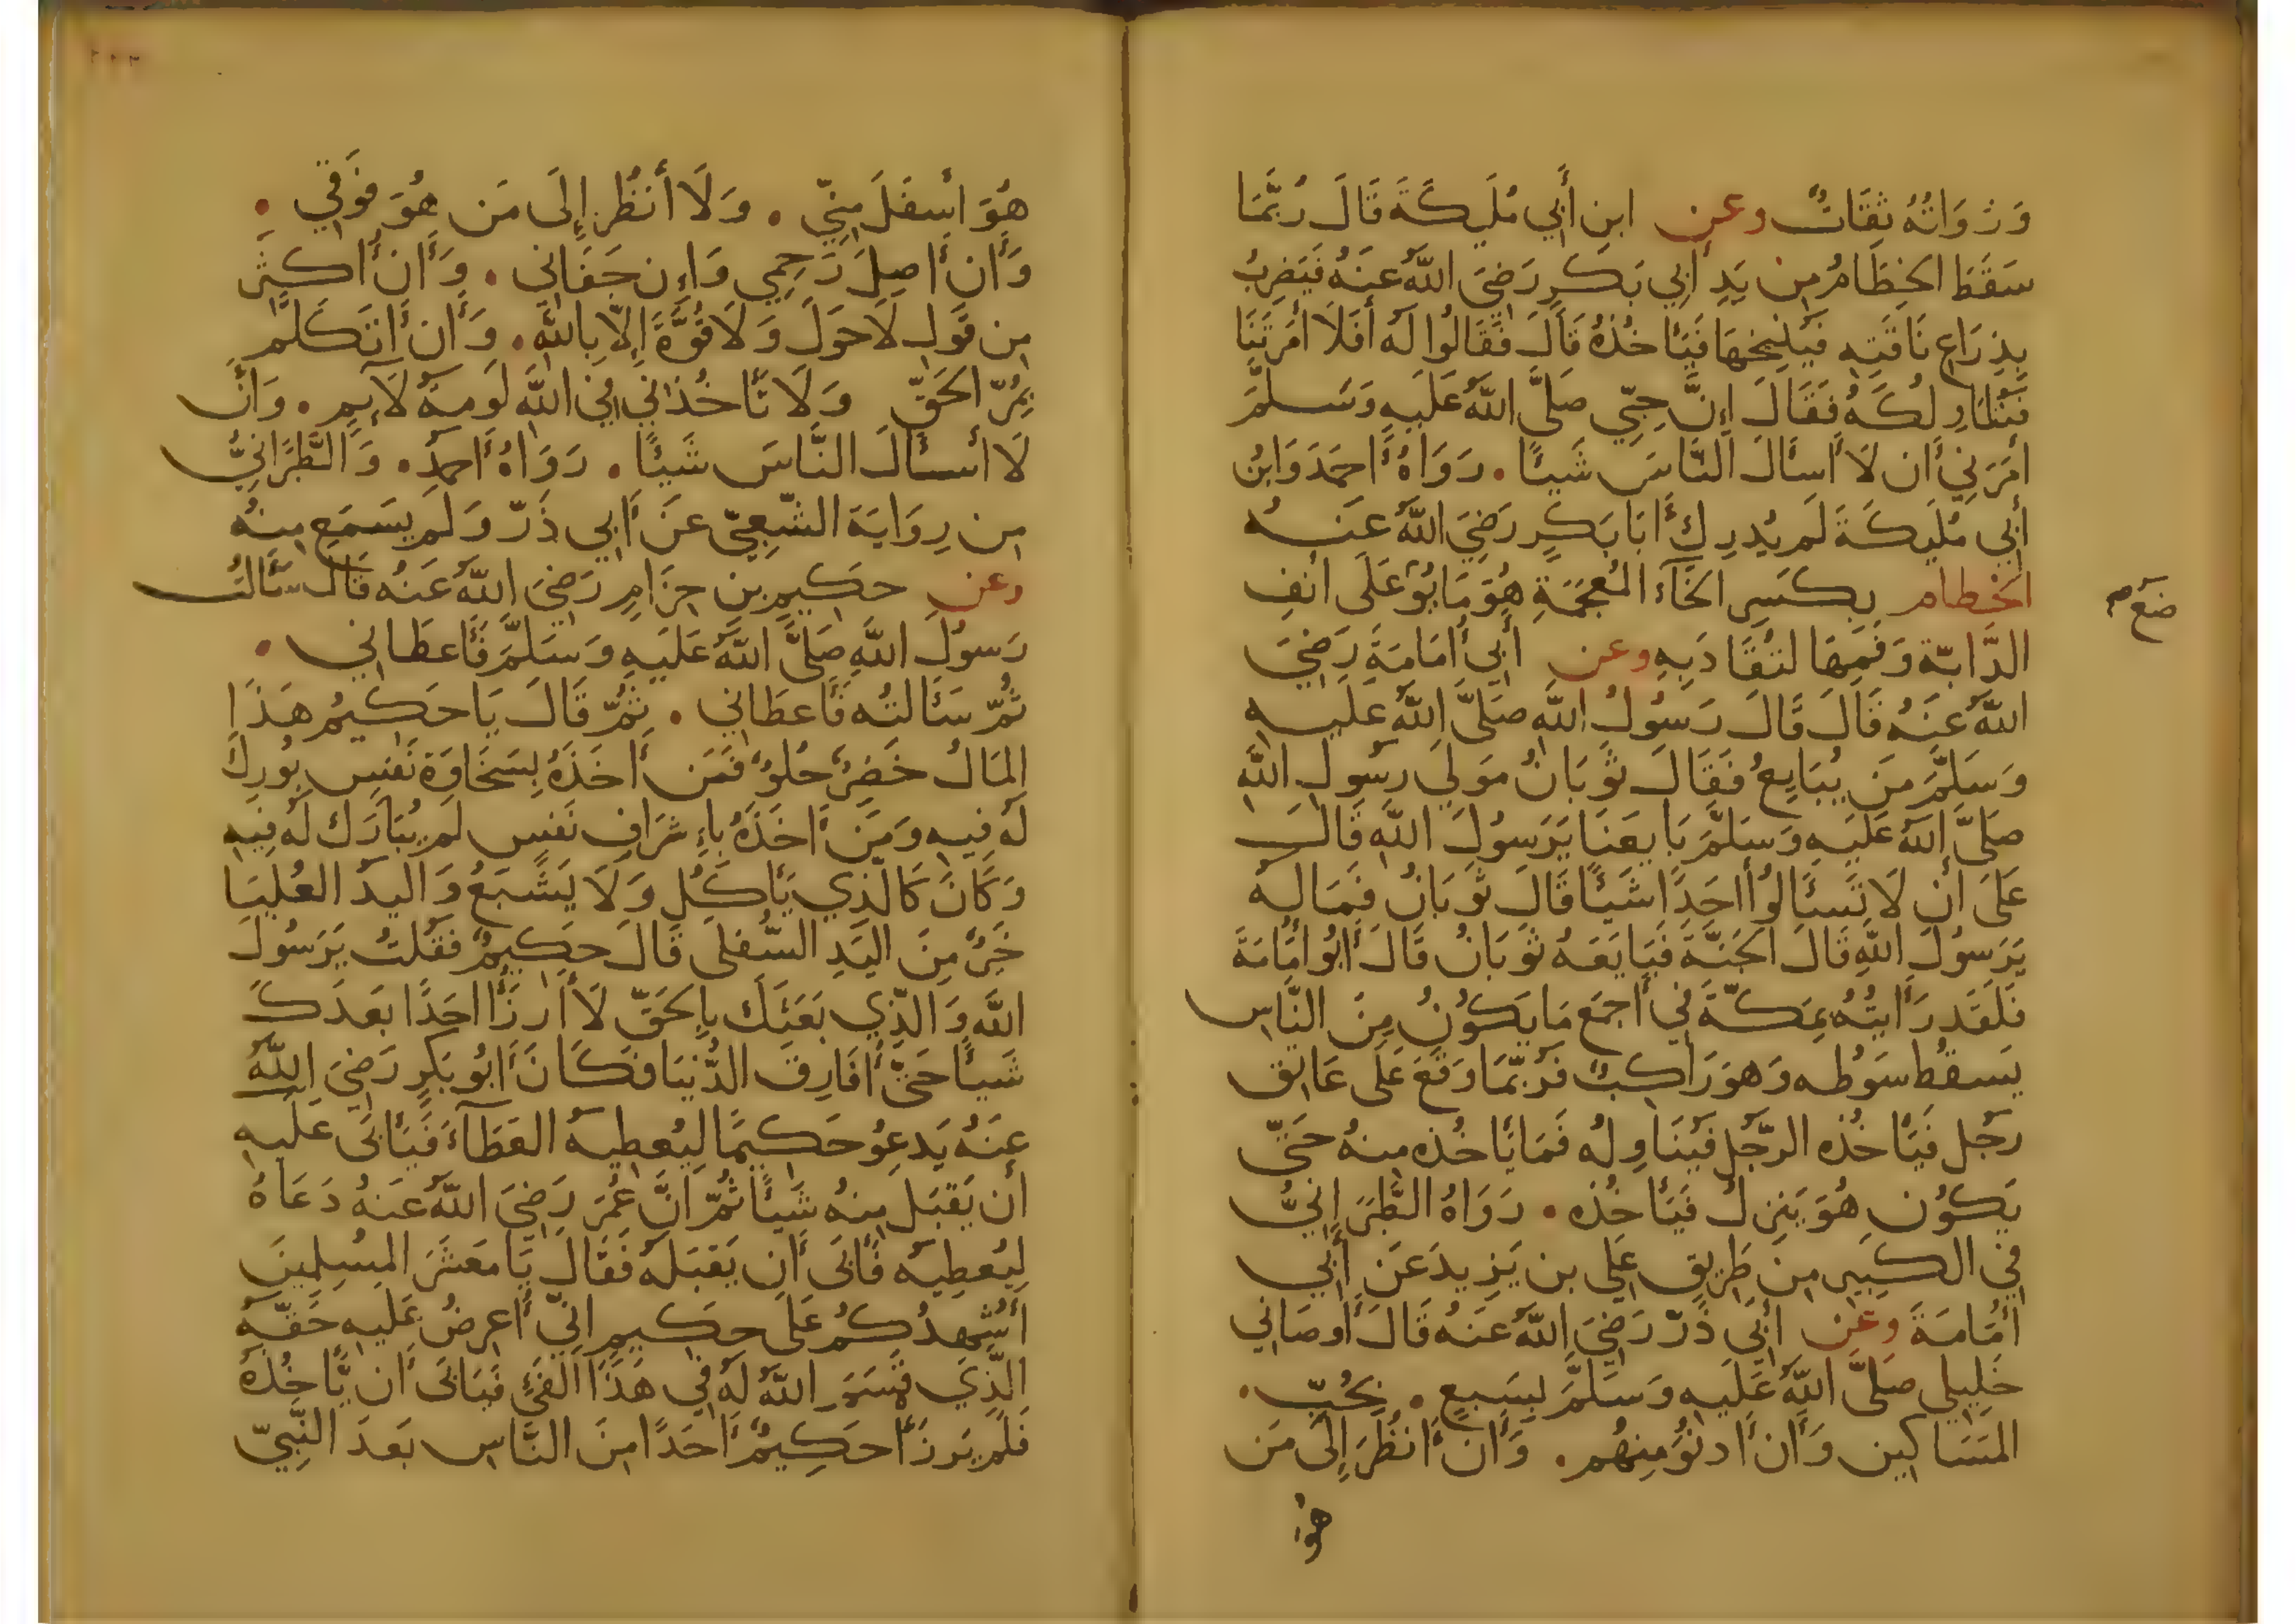 وَرُوَاتُهُ ثِقَاتٌ وعن ابنِ أَبِي مُلَيكَةَ قَالَ رُبَّمَا
سَقَطَ الخِطَامُ مِن يَدِ أَبِي بَكرٍ رَضِيَ اللهُ عَنهُ فَيَضرِبُ
بِذِرَاعِ نَاقَتِهِ فَيُنِيخُهَا فَيَأخُذُهُ قَالَ فَقَالُوا لَهُ أَفَلَا أَمَرتَنَا
فَنُنَاوِلُكَهُ فَقَالَ إِنَّ حِبِّي صَلَّى اللهُ عَلَيهِ وَسَلَّمَ
أَمَرَنِي أَن لَا أَسأَلَ النَّاسَ شَيئًا . رَوَاهُ أَحمَدَ وَابنُ
أَبِي مُلَيكَةَ لَم يُدرِك أَبَا بَكرٍ رَضِيَ اللهُ عَنهُ
الخطام بِكَسرِ الخَاءِ المُعجَمَةِ هُوَ مَا يُوضَعُ عَلَى أَنفِ
الدَّابَّة وَفَمِهَا لتُقَادَ بِهِ وعن أَبِي أُمَامَةَ رَضِيَ
اللهُ عَنهُ قَالَ قَالَ رَسُولُ اللهِ صَلَّى اللهُ عَلَيهِ
وَسَلَّمَ مَن يُبَايِعُ فَقَالَ ثَوبَانُ مَولَى رسُولِ اللهِ
صَلَّى اللهُ عَلَيهِ وَسَلَّمَ بَايعنَا يَرَسُولَ اللهِ قَالَ
عَلَى أَن لَا تَسئَالُوا أَحَدًا شَيئًا قَالَ ثَوبَانُ فَمَا لَهُ
يَرَسُولَ اللهِ قَالَ الجَنَّةَ فَبَايَعَهُ ثَوبَانُ قَالَ أَبُو أُمَامَةَ
فَلَقَد رَأَيتُهُ بِمَكَّةَ فِي أَجمَعِ مَا يَكُونُ مِنَ النَّاسِ
يَسقُط سَوطُه وَهوَ رَاكِبٌ فَرُبَّمَا وَقَعَ عَلَى عَاتِقِ
رَجُلٍ فَيَأخُذه الرَّجُل فَيُنَاوِلُه فَمَا يَأخُذه مِنهُ حَتَّى
يَكُون هُوَ يَنزِلُ فَيَأخُذه . رَوَاهُ الطَّبَرَانِيُّ
فِي الكَبِير مِن طَرِيقِ عَلِي بن يَزِيدَ عَن أَبِي
أُمَامَةَ وعن أَبِي ذَرّ رَضِيَ اللهُ عَنهُ قَالَ أَوصَانِي
خَلِيلِي صَلَّى اللهُ عَلَيهِ وَسَلَّمَ بِسَبعٍ . بِحُبِّ .
المَسَاكِين وَأَن أَدنُوَ مِنهُم . وَأَن أَنظُرَ إِلَى مَن
هُوَ
هُوَ أَسفَلَ مِنِّي . وَلَا أَنظُر إِلَى مَن هُوَ فَوقِي .
وَأَن أَصِلَ رَحِمِي وَإِن جَفَانِي . وَأَن أَكثِر
مِن قَولِ لَا حَولَ وَلَا قُوَّةَ إِلَّا بِاللهِ . وَأَن أَتَكَلَّم
بِمُرِّ الحَقِّ وَلَا تَأخُذنِي فِي اللهِ لَومَةُ لَائِمٍ . وَأَن
لَا أَسئَالَ النَّاسَ شَيئًا . رَوَاهُ أَحمَد . وَالطَّبَرَانِيُّ
مِن رِوَايَة الشَّعبِيّ عَن أَبِي ذَرّ وَلَم يَسمَع مِنهُ
وعن حَكِيمِ بنِ حِزَامٍ رَضِيَ اللهُ عَنهُ قَالَ سَأَلتُ
رَسُولَ اللهِ صَلَّى اللهُ عَلَيهِ وَسَلَّمَ فَأَعطَانِي .
ثُمَّ سَئَالتُه فَأَعطَانِي . ثُمَّ قَالَ يَا حَكِيمُ هَذَا
المَالُ خَضِرٌ حُلوٌ فَمَن أَخَذَهُ بِسَخَاوَةِ نَفسٍ بُورِكَ
لَهُ فِيهِ وَمَن أَخَذَهُ بِإِشرَافِ نَفسٍ لَم يُبَارَك لَهُ فِيهِ
وَكَانَ كَالَّذِي يَأكُلُ وَلَا يَشبَعُ وَاليَدُ العُليَا
خَيرٌ مِنَ اليَدِ السُّفلَى قَالَ حَكِيمٌ فَقُلتُ يَرَسُولَ
اللهِ وَالَّذِي بَعَثَكَ بِالحَقِّ لَا أَرزَأُ أَحَدًا بَعدَكَ
شَيئًا حَتَّى أُفَارِقَ الدُّنيَا فَكَانَ أَبُو بَكرٍ رَضِيَ اللهُ
عَنهُ يَدعُو حَكِيمًا لِيُعطِيهُ العَطَآءَ فَيَأبَى عَلَيهِ
أَن يَقبَلَ مِنهُ شَيئًا ثُمَّ انَّ عُمَرَ رَضِيَ اللهُ عَنهُ دَعَاهُ
لِيُعطِيَه فَأَبَى أَن يَقبَلَهُ فَقَالَ يَا مَعشَرَ المُسلِمِينَ
أُشهِدُكُم عَلَى حَكِيمٍ انِّي أَعرِضُ عَلَيهِ حَقَّهُ
الَّذِي قَسَمَ اللهُ لَهُ فِي هَذَا الفَيءِ فَيَابَى أَن يَأخُذَهُ
فَلَم يَرزَأ حَكِيمٌ أَحَدًا مِنَ النَّاسِ بَعدَ النَّبِيِّ